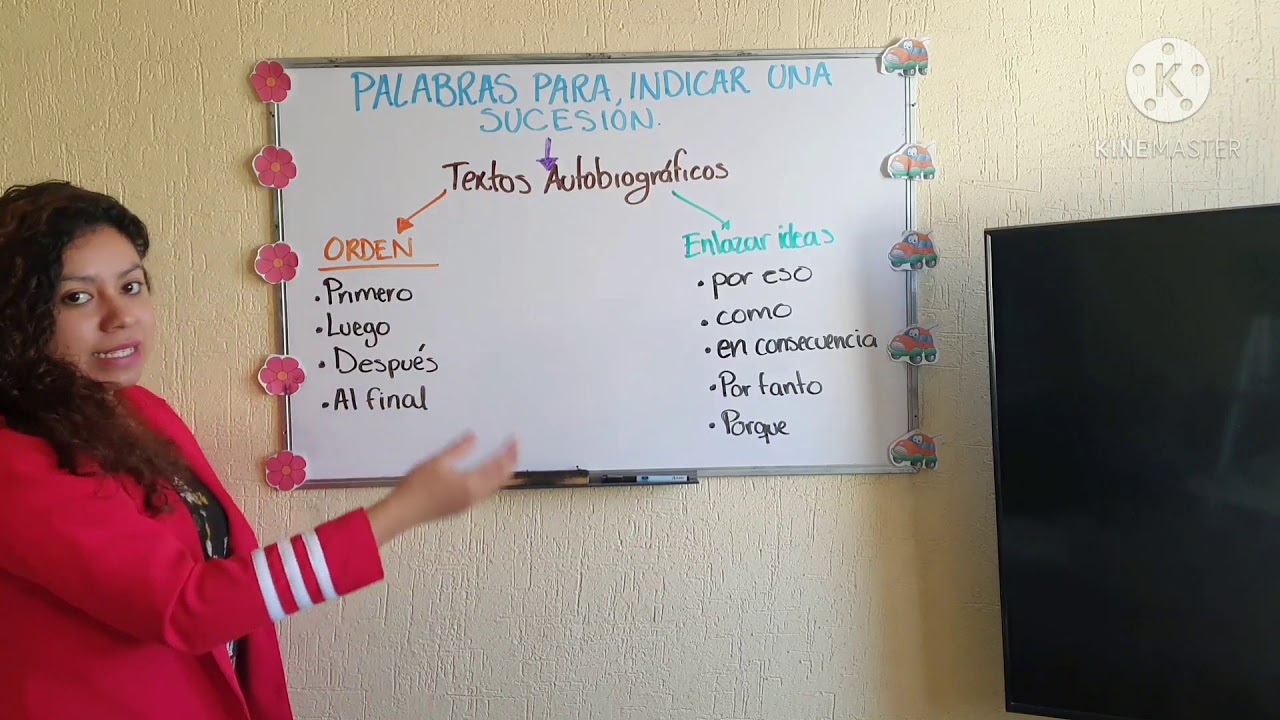 PALABRAS PARA, INDICAR UNA
SUCESIÓN.
Textos Autobiográficos
ORDEN
• Primero
• Luego
• Después
• Al final
Enlazar ideas
• por eso
• como
• en consecuencia
• Por tanto
• Porque
K
KINEMASTER